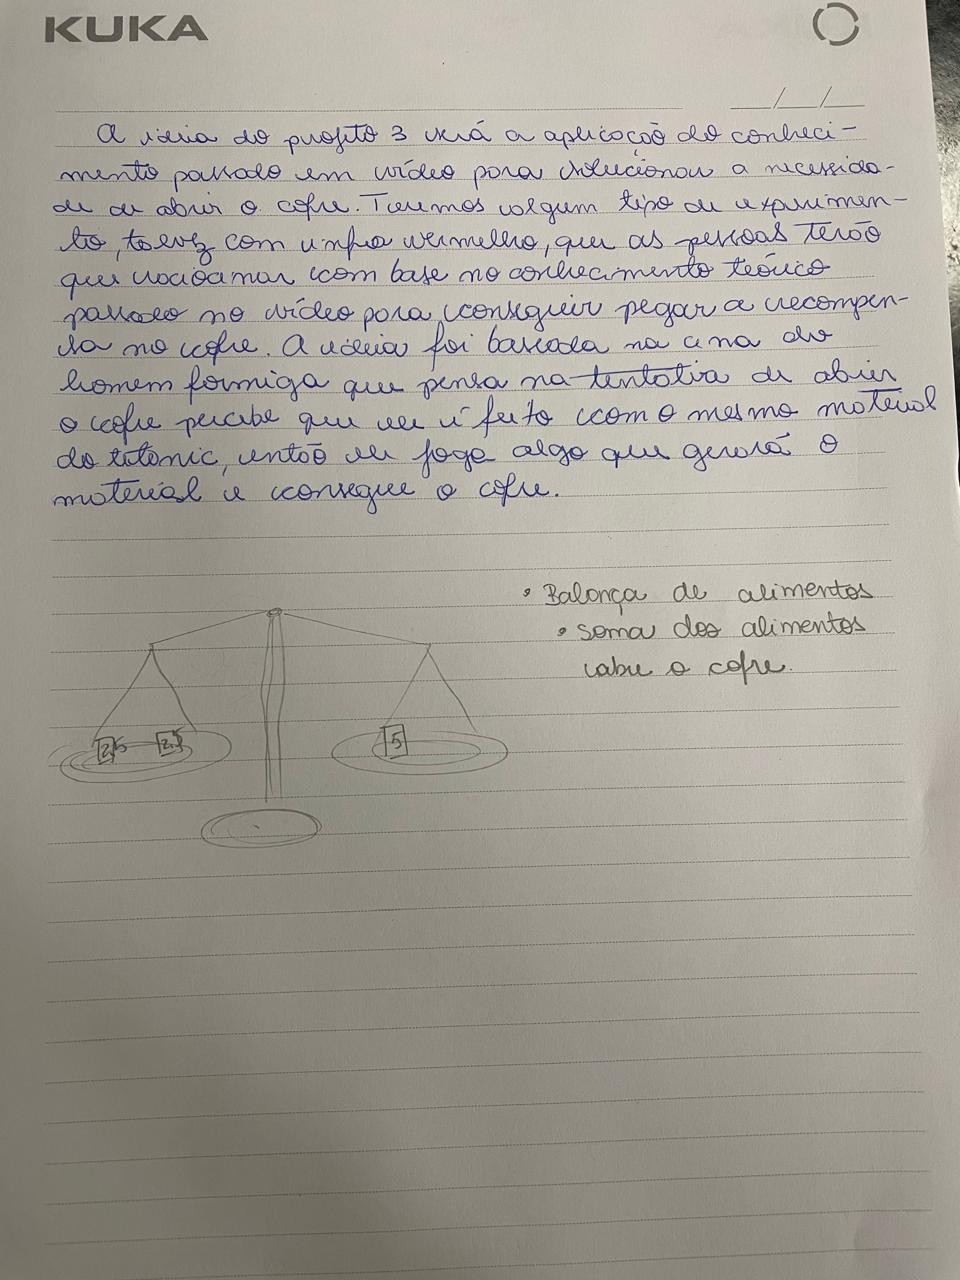 KUKA
__/__/__
A ideia do projeto 3 será a aplicação do conheci-
mento passado em vídeo para solucionar a necessida-
de de abrir o cofre. Teremos algum tipo de experimen-
to, talvez com infra vermelho, que as pessoas terão
que raciocinar com base no conhecimento teórico
passado no vídeo para conseguir pegar a recompen-
sa no cofre. A ideia foi baseada na cena do
homem formiga que pensa na tentativa de abrir
o cofre percebe que ele é feito com o mesmo material
do titanic, então ele joga algo que gerará o
material e consegue o cofre.
• Balança de alimentos
• soma dos alimentos
abre o cofre.
2,5 2,5 5